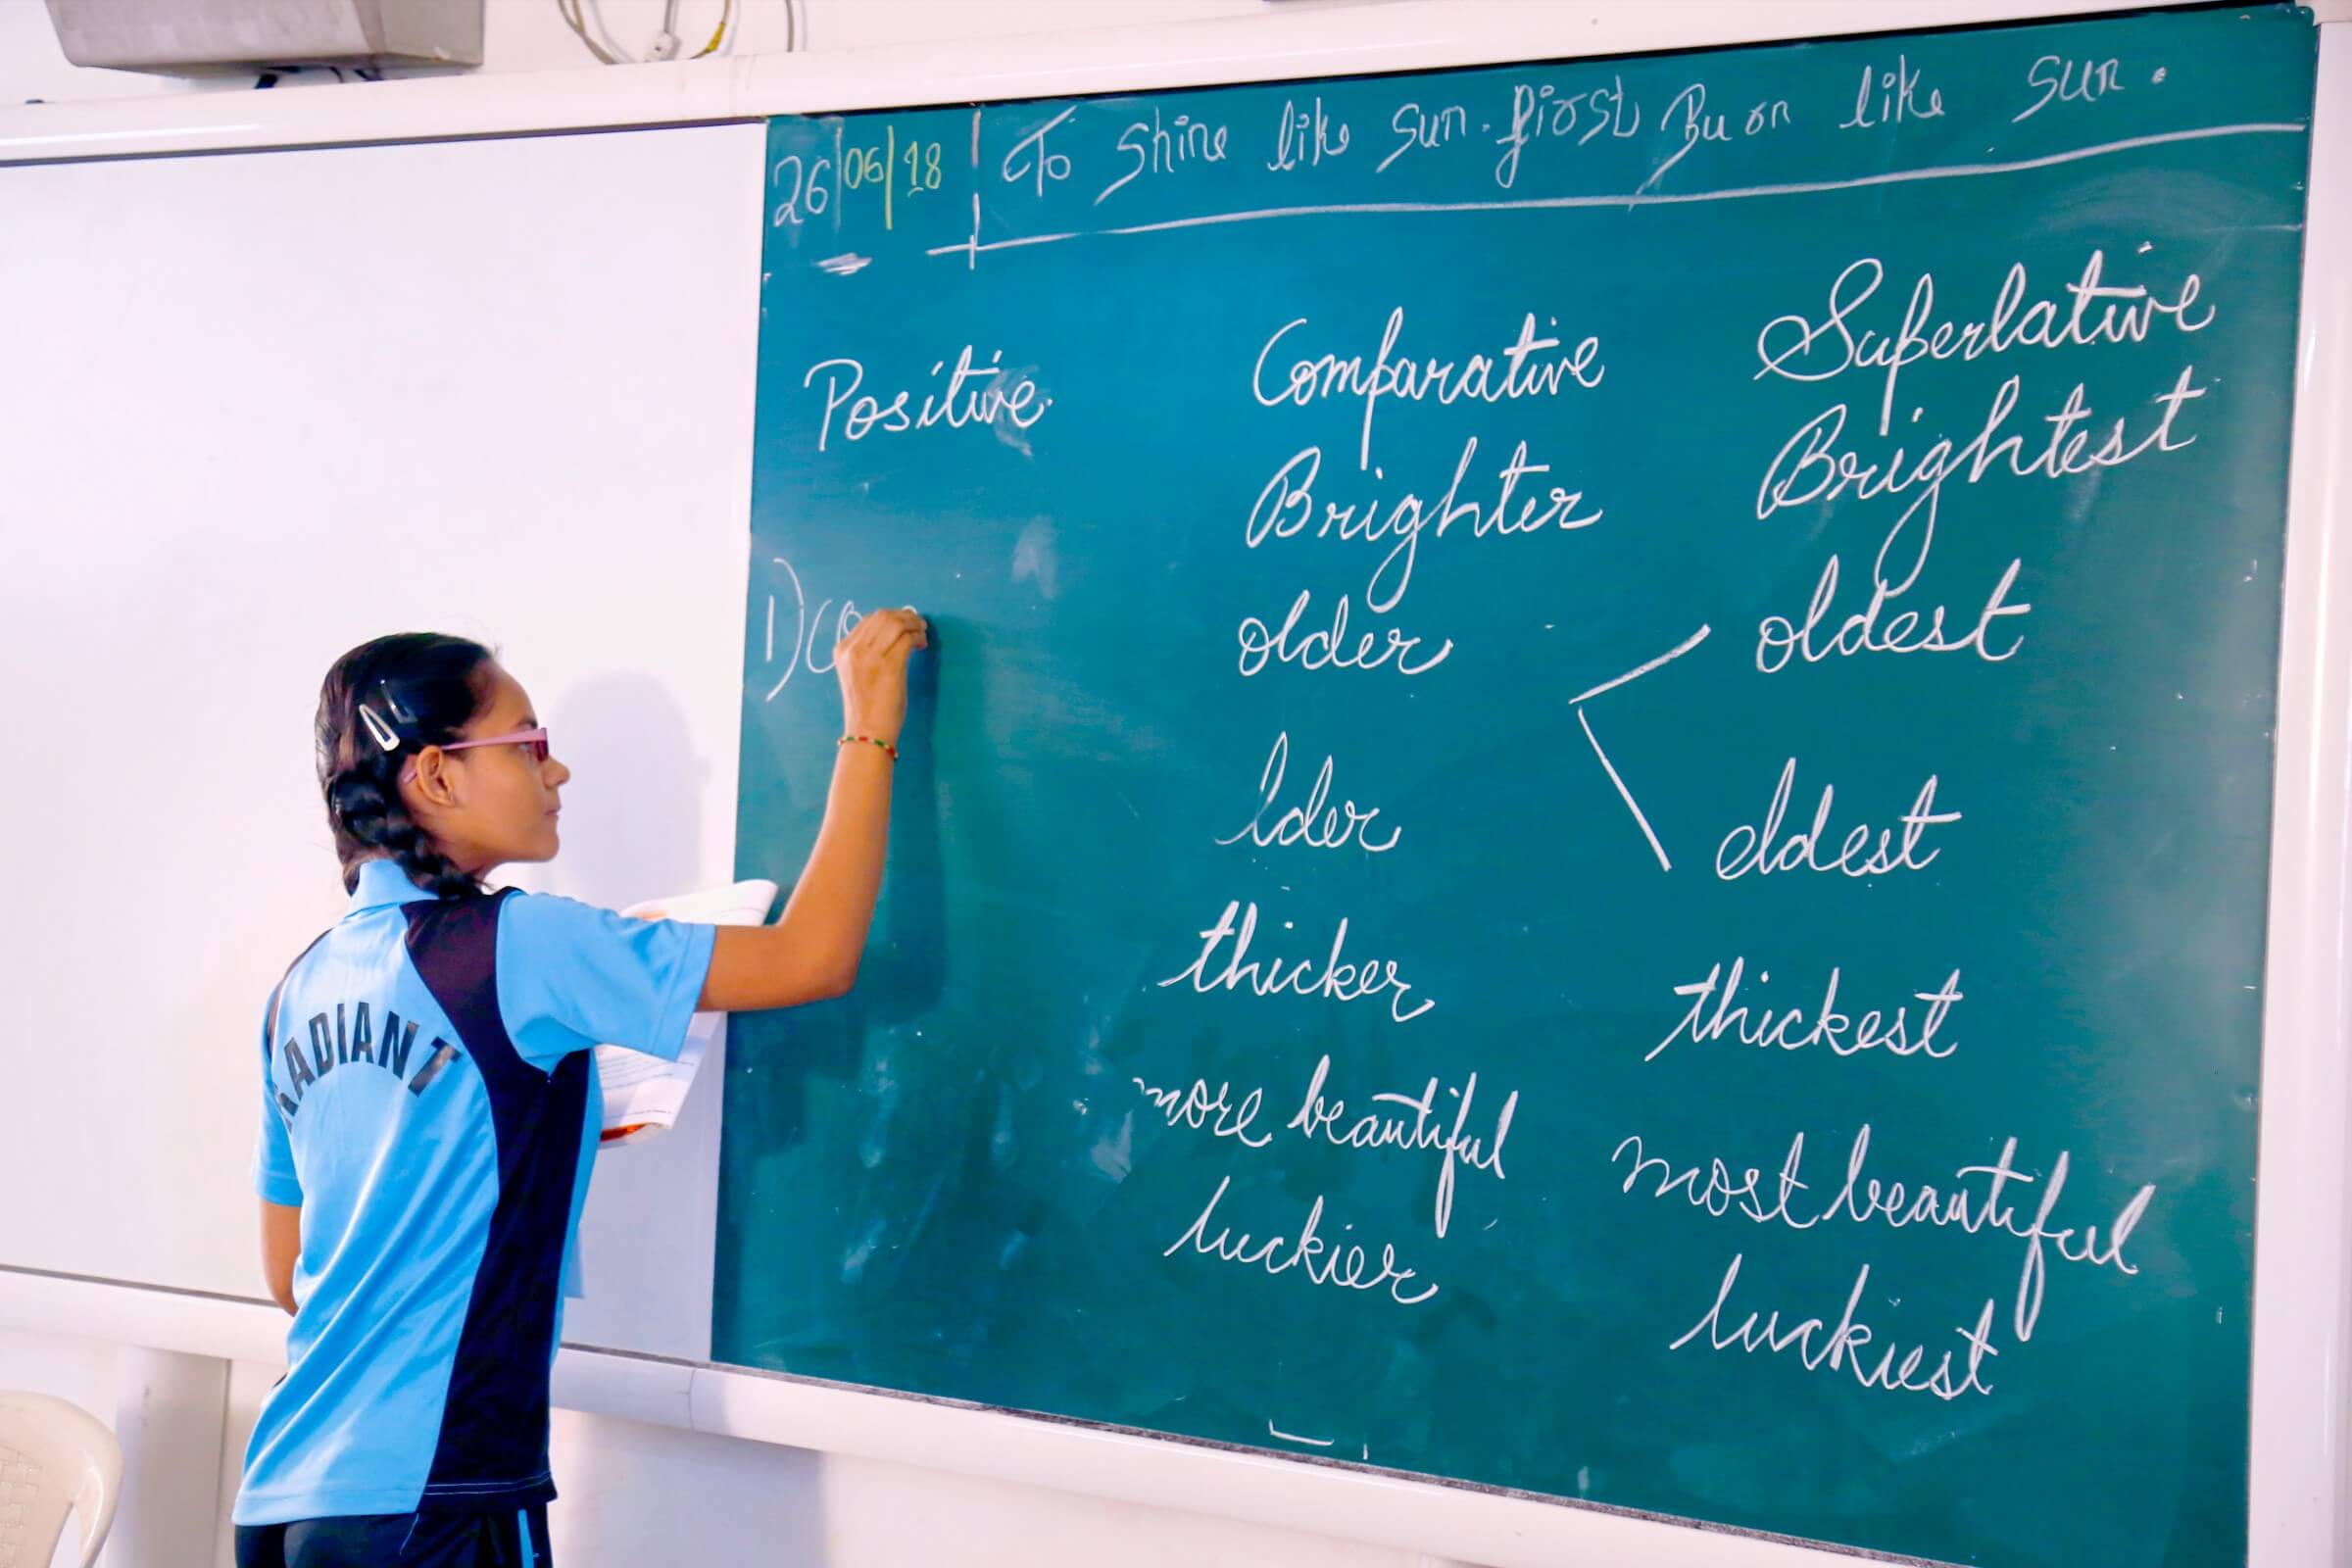 26/06/18 To Shine like Sun. first Burn like Sun.
Positive Comparative Superlative
Brighter Brightest
older oldest
lder eldest
thicker thickest
more beautiful most beautiful
luckier luckiest
1)
RADIANT